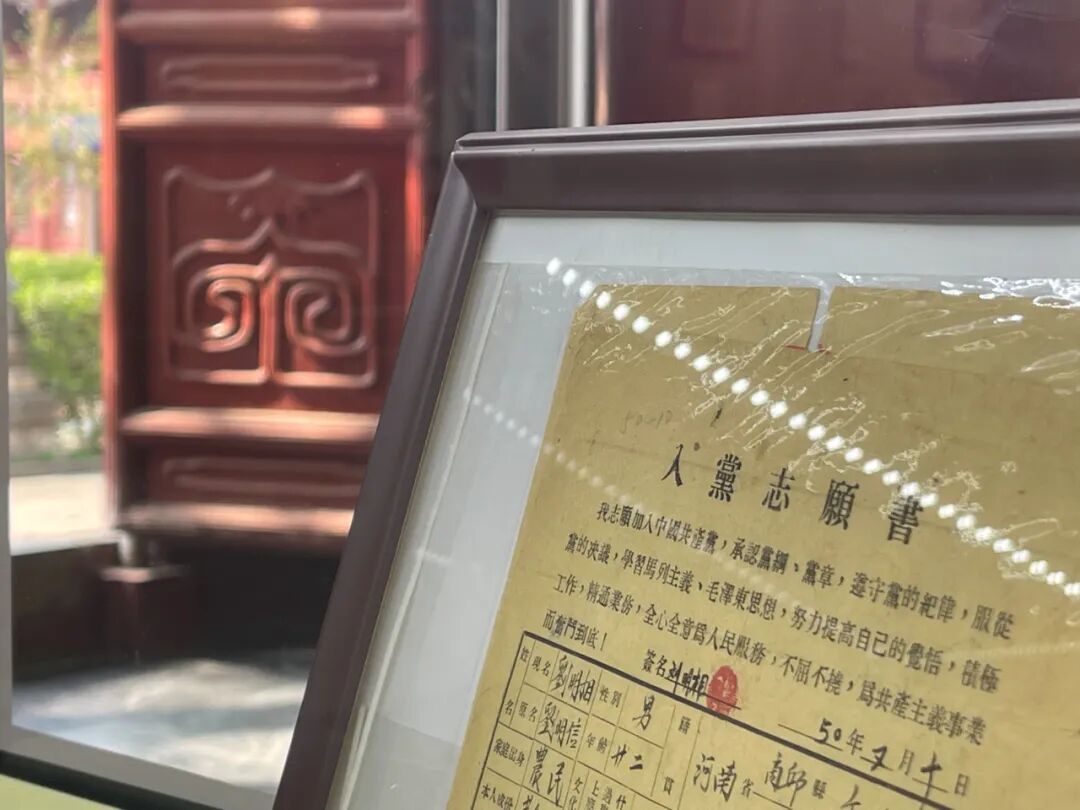 50-10
入黨志願書
我志願加入中國共產黨，承認黨綱、黨章，遵守黨的紀律，服從
黨的決議，學習馬列主義、毛澤東思想，努力提高自己的覺悟，積極
工作，精通業務，全心全意爲人民服務，不屈不撓，爲共產主義事業
而奮鬥到底！
簽名 刘明相
50年又月十日
姓名 現名 劉明相 性別 男 籍貫 河南省 商邱縣
原名 劉明信 年齡 廿二
家庭出身 農民 文化
本人成份